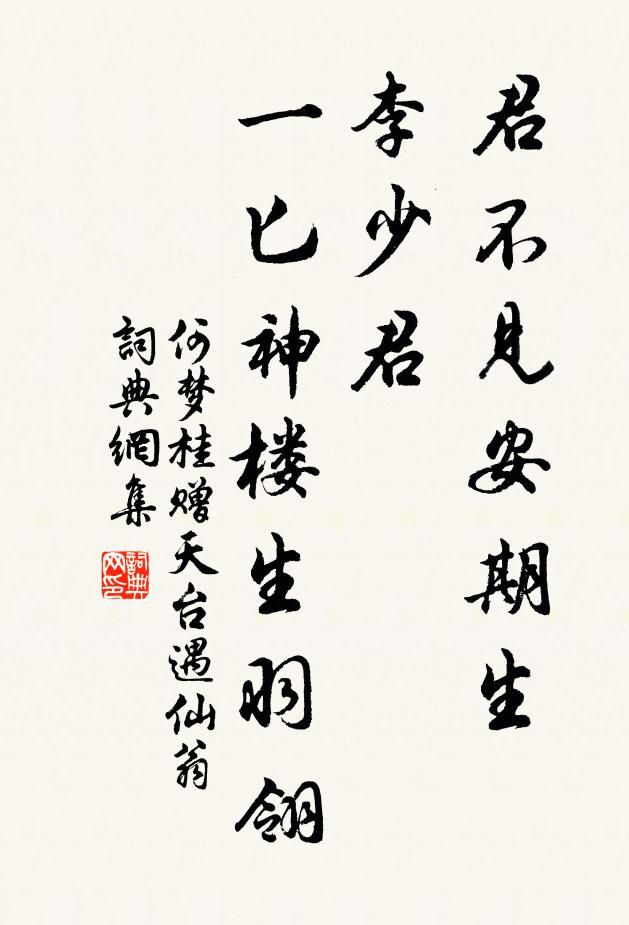 君不见安期生
李少君
一匕神楼生羽翎
何梦桂赠天台遇仙翁
詞典網集
詞典網印